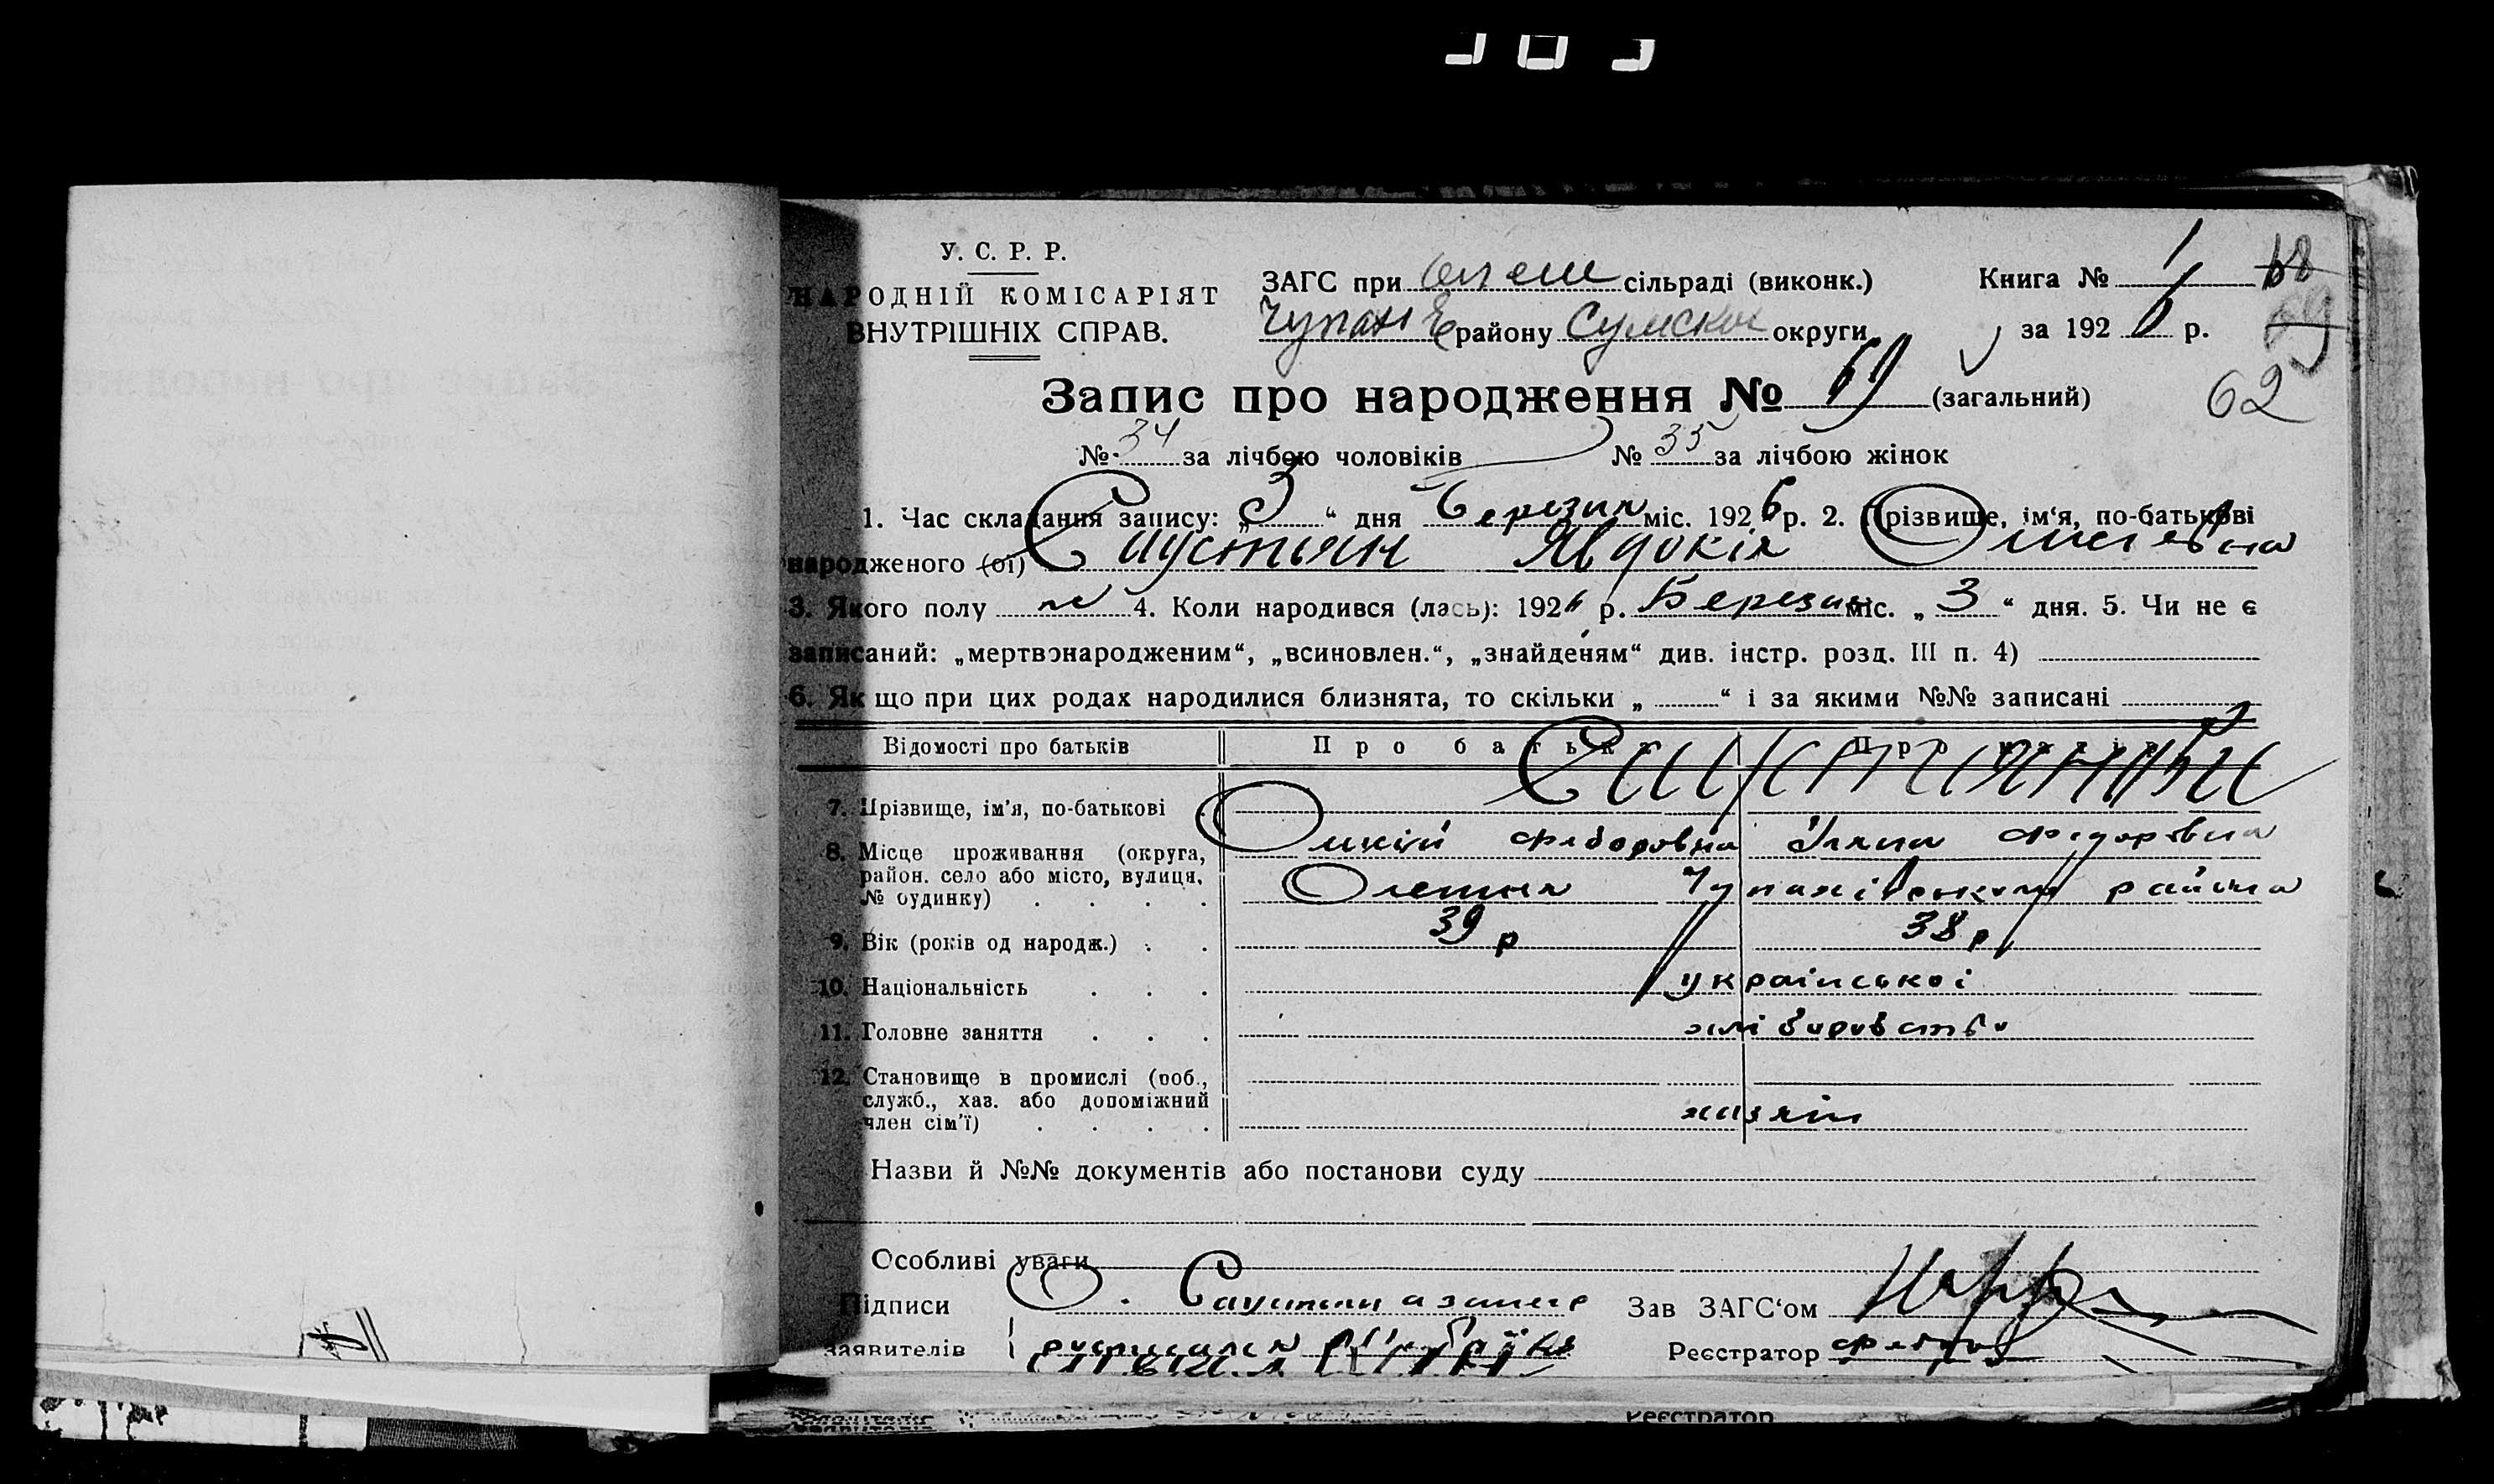 У. С. Р. Р.
НАРОДНІЙ КОМІСАРІЯТ
ВНУТРІШНІХ СПРАВ.
ЗАГС при Олеш сільраді (виконк.)
Чупах району Сумской округи
Книга № 1
за 1926 р.
68
69
62
Запис про народження № 69 (загальний)
№ 34 за лічбою чоловіків № 35 за лічбою жінок
1. Час складання запису: „3“ дня Березня міс. 1926 р. 2. Прізвище, ім‘я, по-батькові
народженого (ої) Саустьян Явдокія
3. Якого полу ж 4. Коли народився (лась): 1926 р. Березня міс. „3“ дня. 5. Чи не є
записаний: „мертвонародженим“, „всиновлен.“, „знайденям“ див. інстр. розд. III п. 4)
6. Якщо при цих родах народилися близнята, то скільки „ “ і за якими №№ записані
Відомості про батьків Про батька Про матір
7. Прізвище, ім'я, по-батькові
Федоровна Уляна Федоровна
8. Місце проживання (округа, район. село або місто, вулиця, № будинку) Олешня Чупахівського района
9. Вік (років од народж.) 39 р 38 р
10. Національність української
11. Головне заняття хліборобство
12. Становище в промислі (роб., служб., хаз. або допоміжний член сім'ї) хазяїн
Назви й №№ документів або постанови суду
Особливі уваги
Підписи О. Саустьян а за него Зав ЗАГС‘ом
заявителів росписался Реєстратор
Реєстратор